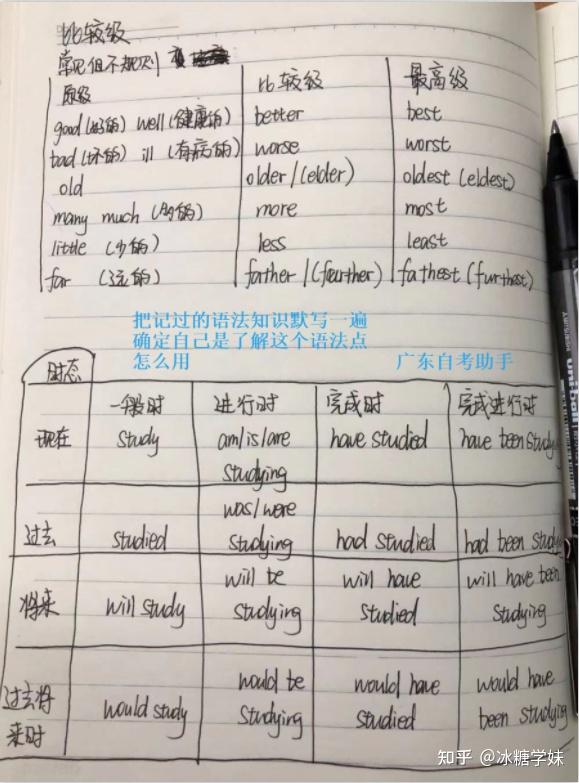 比较级
常见但不规则
原级 比较级 最高级
good(好的) well(健康的) better best
bad(坏的) ill (有病的) worse worst
old older/(elder) oldest (eldest)
many much (多的) more most
little (少的) less least
far (远的) farther/(further) fathest (furthest)
把记过的语法知识默写一遍
确定自己是了解这个语法点
怎么用 广东自考助手
时态 一般时 进行时 完成时 完成进行时
现在 study am/is/are have studied have been studying
studying
was/were
过去 studied studying had studied had been study
will be will have will have been
将来 will study studying studied studying
过去将 would be would have would have
来时 would study studying studied been studying
知乎 @冰糖学妹